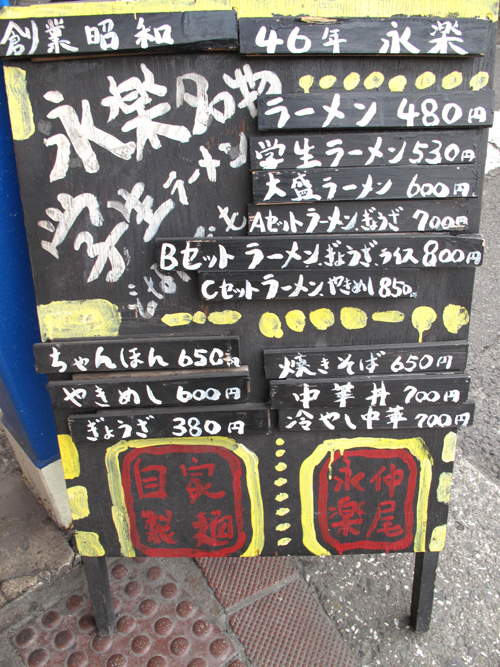 創業昭和 46年 永楽
永楽名物
学生ラーメン
ラーメン 480円
学生ラーメン 530円
大盛ラーメン 600円
Aセットラーメンぎょうざ 700円
Bセットラーメン.ぎょうざ.ライス 800円
Cセットラーメン.やきめし 850円
ちゃんぽん 650円
やきめし 600円
ぎょうざ 380円
焼きそば 650円
中華丼 700円
冷やし中華 700円
自家製麺
仲尾永楽